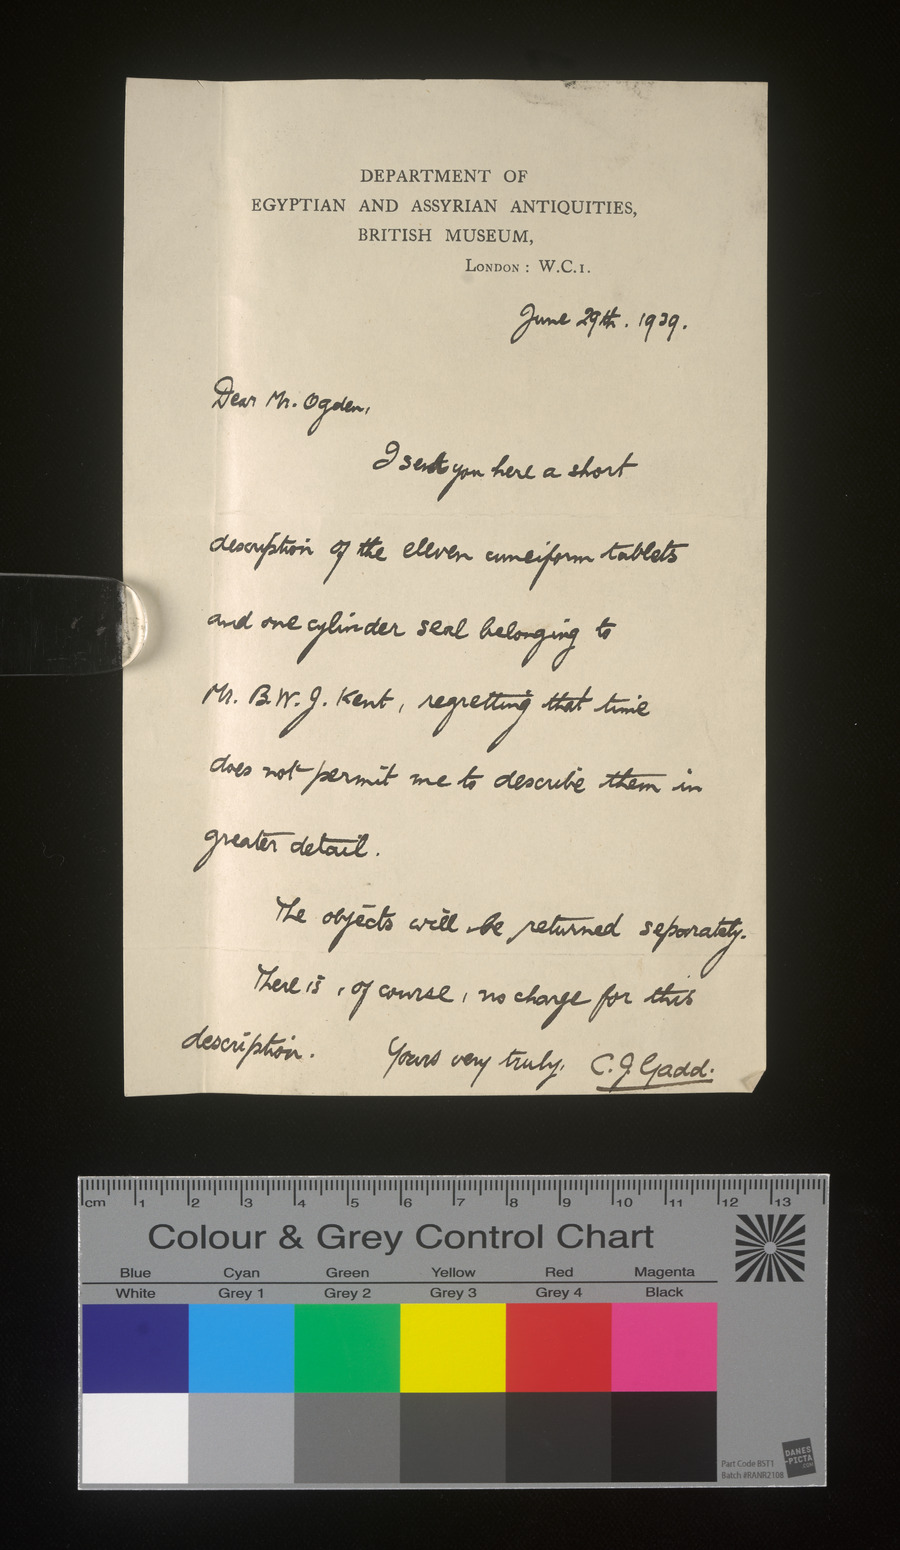 DEPARTMENT OF
EGYPTIAN AND ASSYRIAN ANTIQUITIES,
BRITISH MUSEUM,
LONDON : W.C.1.
June 29th. 1939.
Dear Mr. Ogden,
I send you here a short
description of the eleven cuneiform tablets
and one cylinder seal belonging to
Mr. B.W.J. Kent, regretting that time
does not permit me to describe them in
greater detail.
The objects will be returned separately.
There is, of course, no charge for this
description. Yours very truly, C.J. Gadd.
cm 1 2 3 4 5 6 7 8 9 10 11 12 13
Colour & Grey Control Chart
Blue Cyan Green Yellow Red Magenta
White Grey 1 Grey 2 Grey 3 Grey 4 Black
Part Code BST1
Batch #RANR2108
DANES
-PICTA
.COM